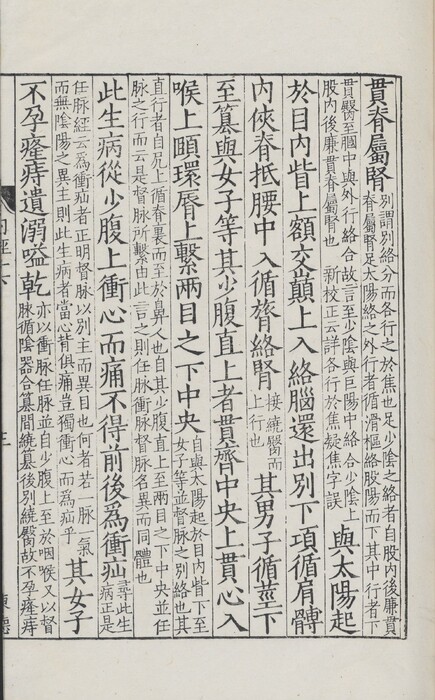 貫脊屬腎
別謂別絡分而各行之於焦也足少陰之絡者自股內後廉貫
脊屬腎足太陽絡之外行者循樞絡股陽而下其中行者下
貫臀至膕中與外行絡合故言至少陰與巨陽中絡合少陰上
股內後廉貫脊屬腎也 新校正云詳各行於焦疑焦字誤
與太陽起
於目內眥上額交巔上入絡腦還出別下項循肩髆
內俠脊抵腰中入循膂絡腎
接繞臀而
上行也
其男子循莖下
至篡與女子等其少腹直上者貫齊中央上貫心入
喉上頤環脣上繫兩目之下中央
自與太陽起於目內眥下至
女子等並督脉之別絡也其
直行者自尻上循脊裏而至於鼻人也自其少腹直上至兩目之下中央並任
脉之行而云是督脉所繫由此言之則任脉衝脉督脉名異而同體也
此生病從少腹上衝心而痛不得前後爲衝疝
尋此生
病正是
任脉經云為衝疝者正明督脉以別主而異目也何者若一脉一氣
而無陰陽之異主則此生病者當心背俱痛豈獨衝心而為疝乎
其女子
不孕癃痔遺溺嗌乾
亦以衝脉任脉並自少腹上至於咽喉又以督
脉循陰器合篡間繞篡後別繞臀故不孕癃痔
三